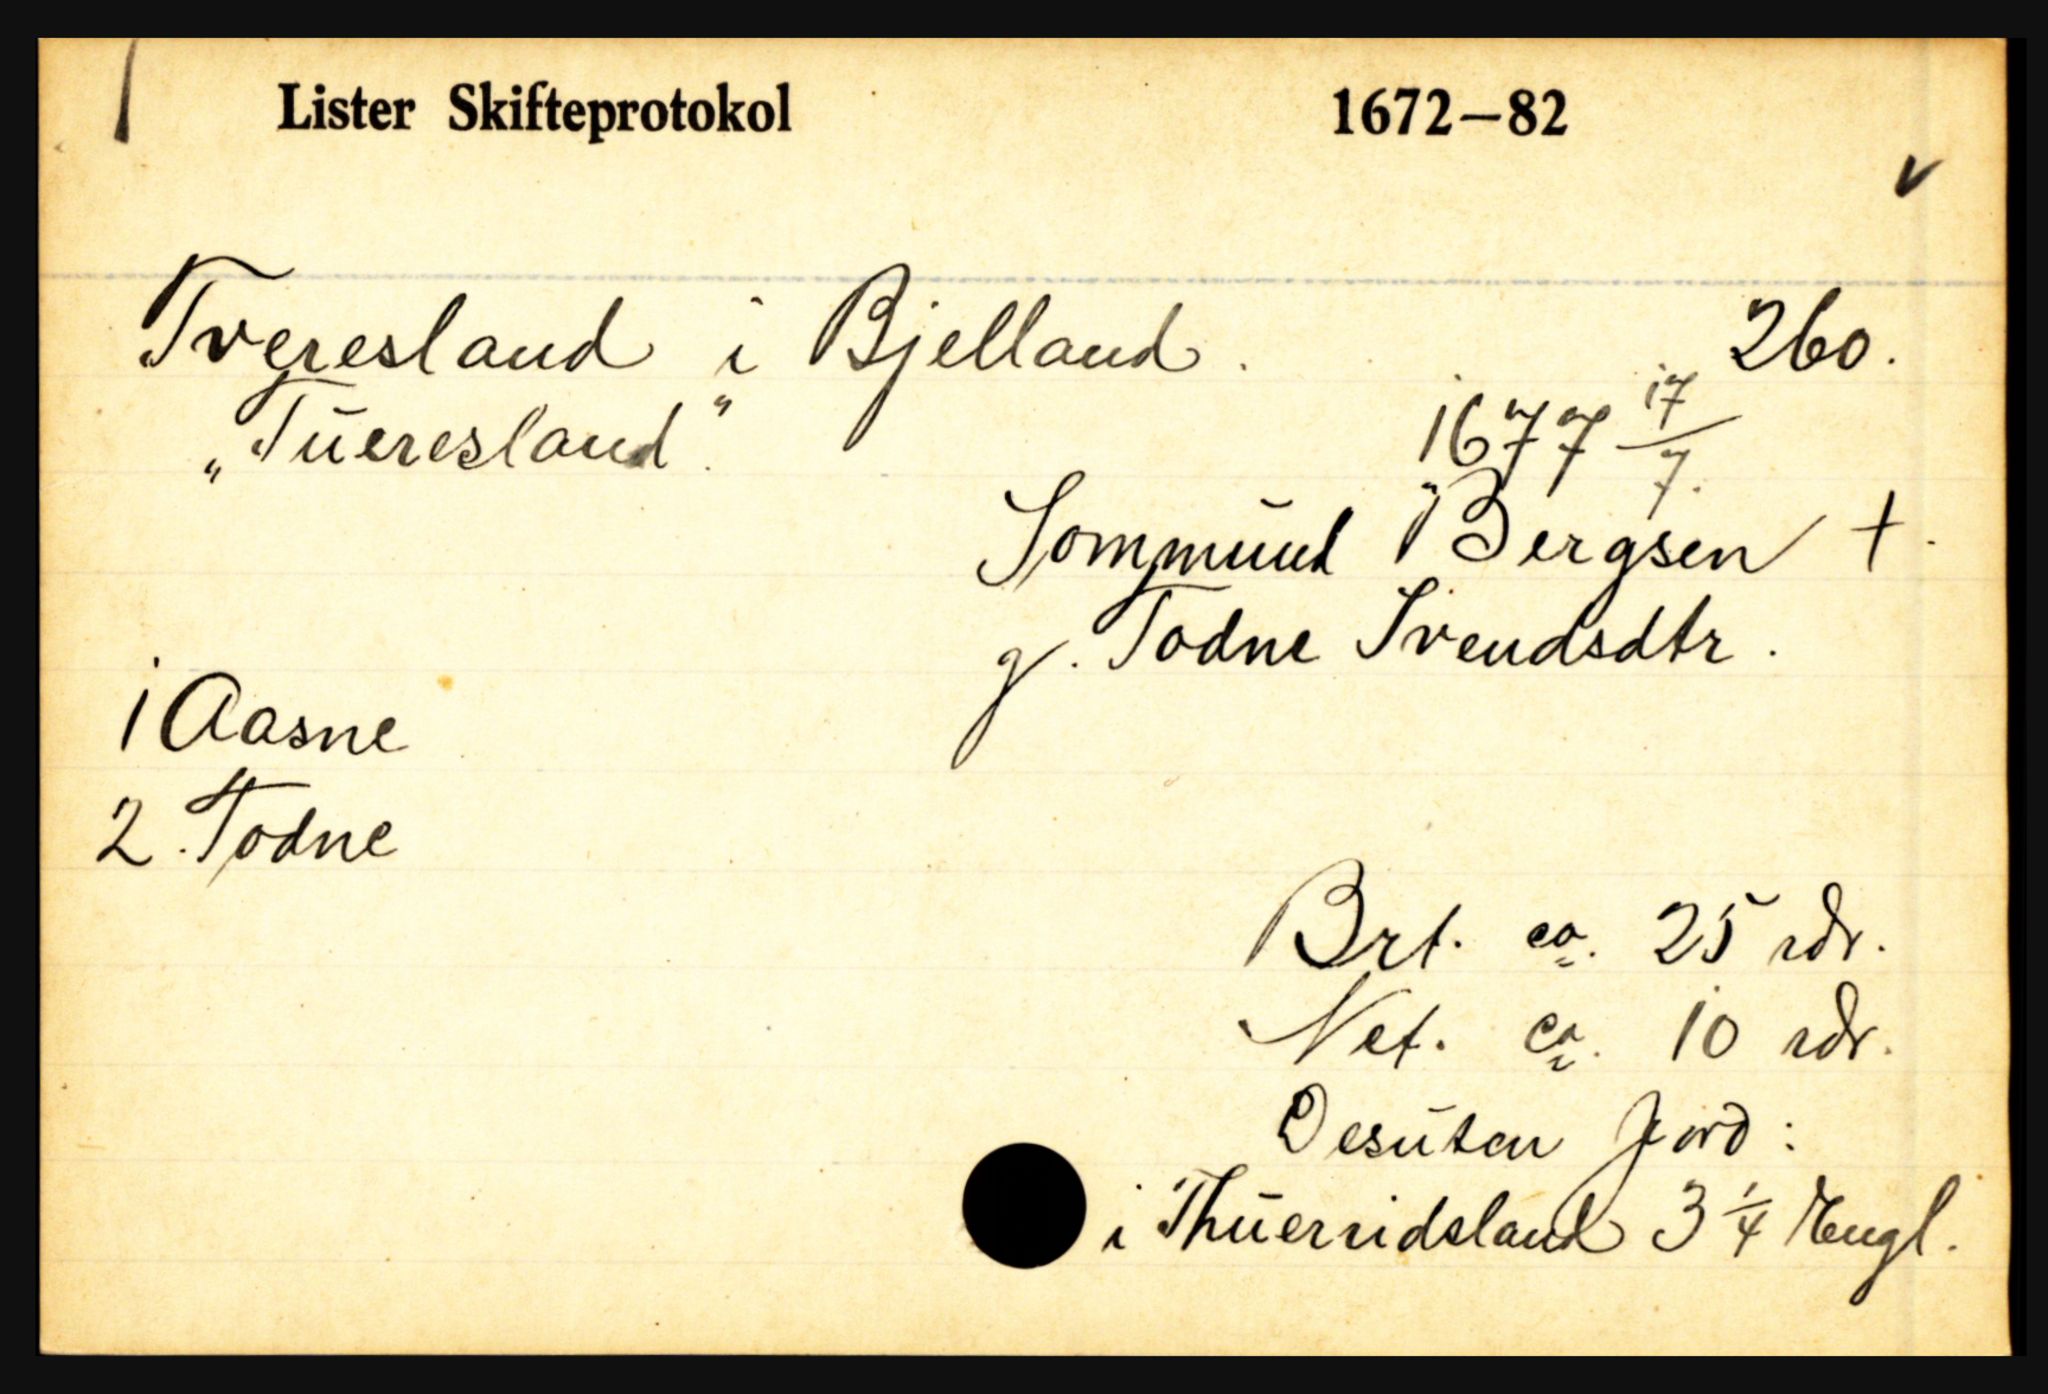 Lister Skifteprotokol 1672-82
Tveresland i Bjelland. 260.
„Tūeresland." 1677 17/7.
Sommūnd "Bergsen +.
g. Todne Svendsdtr.
1 Aasne
2. Todne
Brt. ca. 25 rdr.
Net. ca. 10 rdr.
Desūten Jord:
i Thūerridsland 3 1/4 Engl.